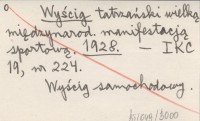 Wyścig tatrzański wielką
międzynarod. manifestacją
sportową. 1928. — IKC
19, nr 224.
Wyścig samochodowy.